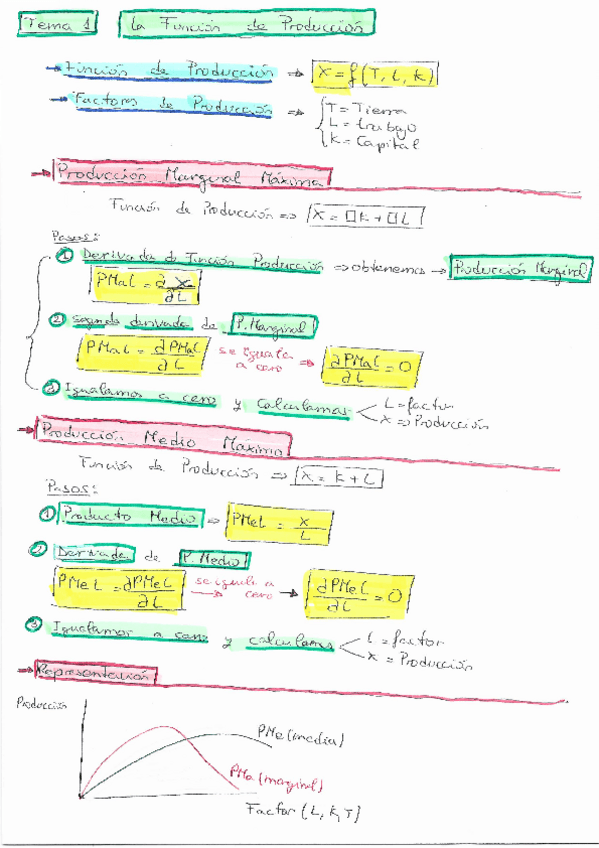 Tema 1 La Función de Producción
Función de Producción ⇒ X = f(T, L, K)
Factores de Producción ⇒ T = Tierra
L = trabajo
K = Capital
Producción Marginal Máxima
Función de Producción ⇒ X = □K + □L
Pasos:
① Derivada de Función Producción ⇒ obtenemos → Producción Marginal
PMaL = ∂X/∂L
② Segunda derivada de P. Marginal
PMaL = ∂PMaL/∂L se iguala a cero ⇒ ∂PMaL/∂L = 0
③ Igualamos a cero y calculamos L = factor
X ⇒ Producción
Producción Medio Máximo
Función de Producción ⇒ X = K + L
Pasos:
① Producto Medio ⇒ PMeL = X/L
② Derivada de P. Medio
PMeL = ∂PMeL/∂L se iguala a cero → ∂PMeL/∂L = 0
③ Igualamos a sero y calculamos L = factor
X = Producción
Representación
Producción
PMe (media)
PMa (marginal)
Factor (L, K, T)